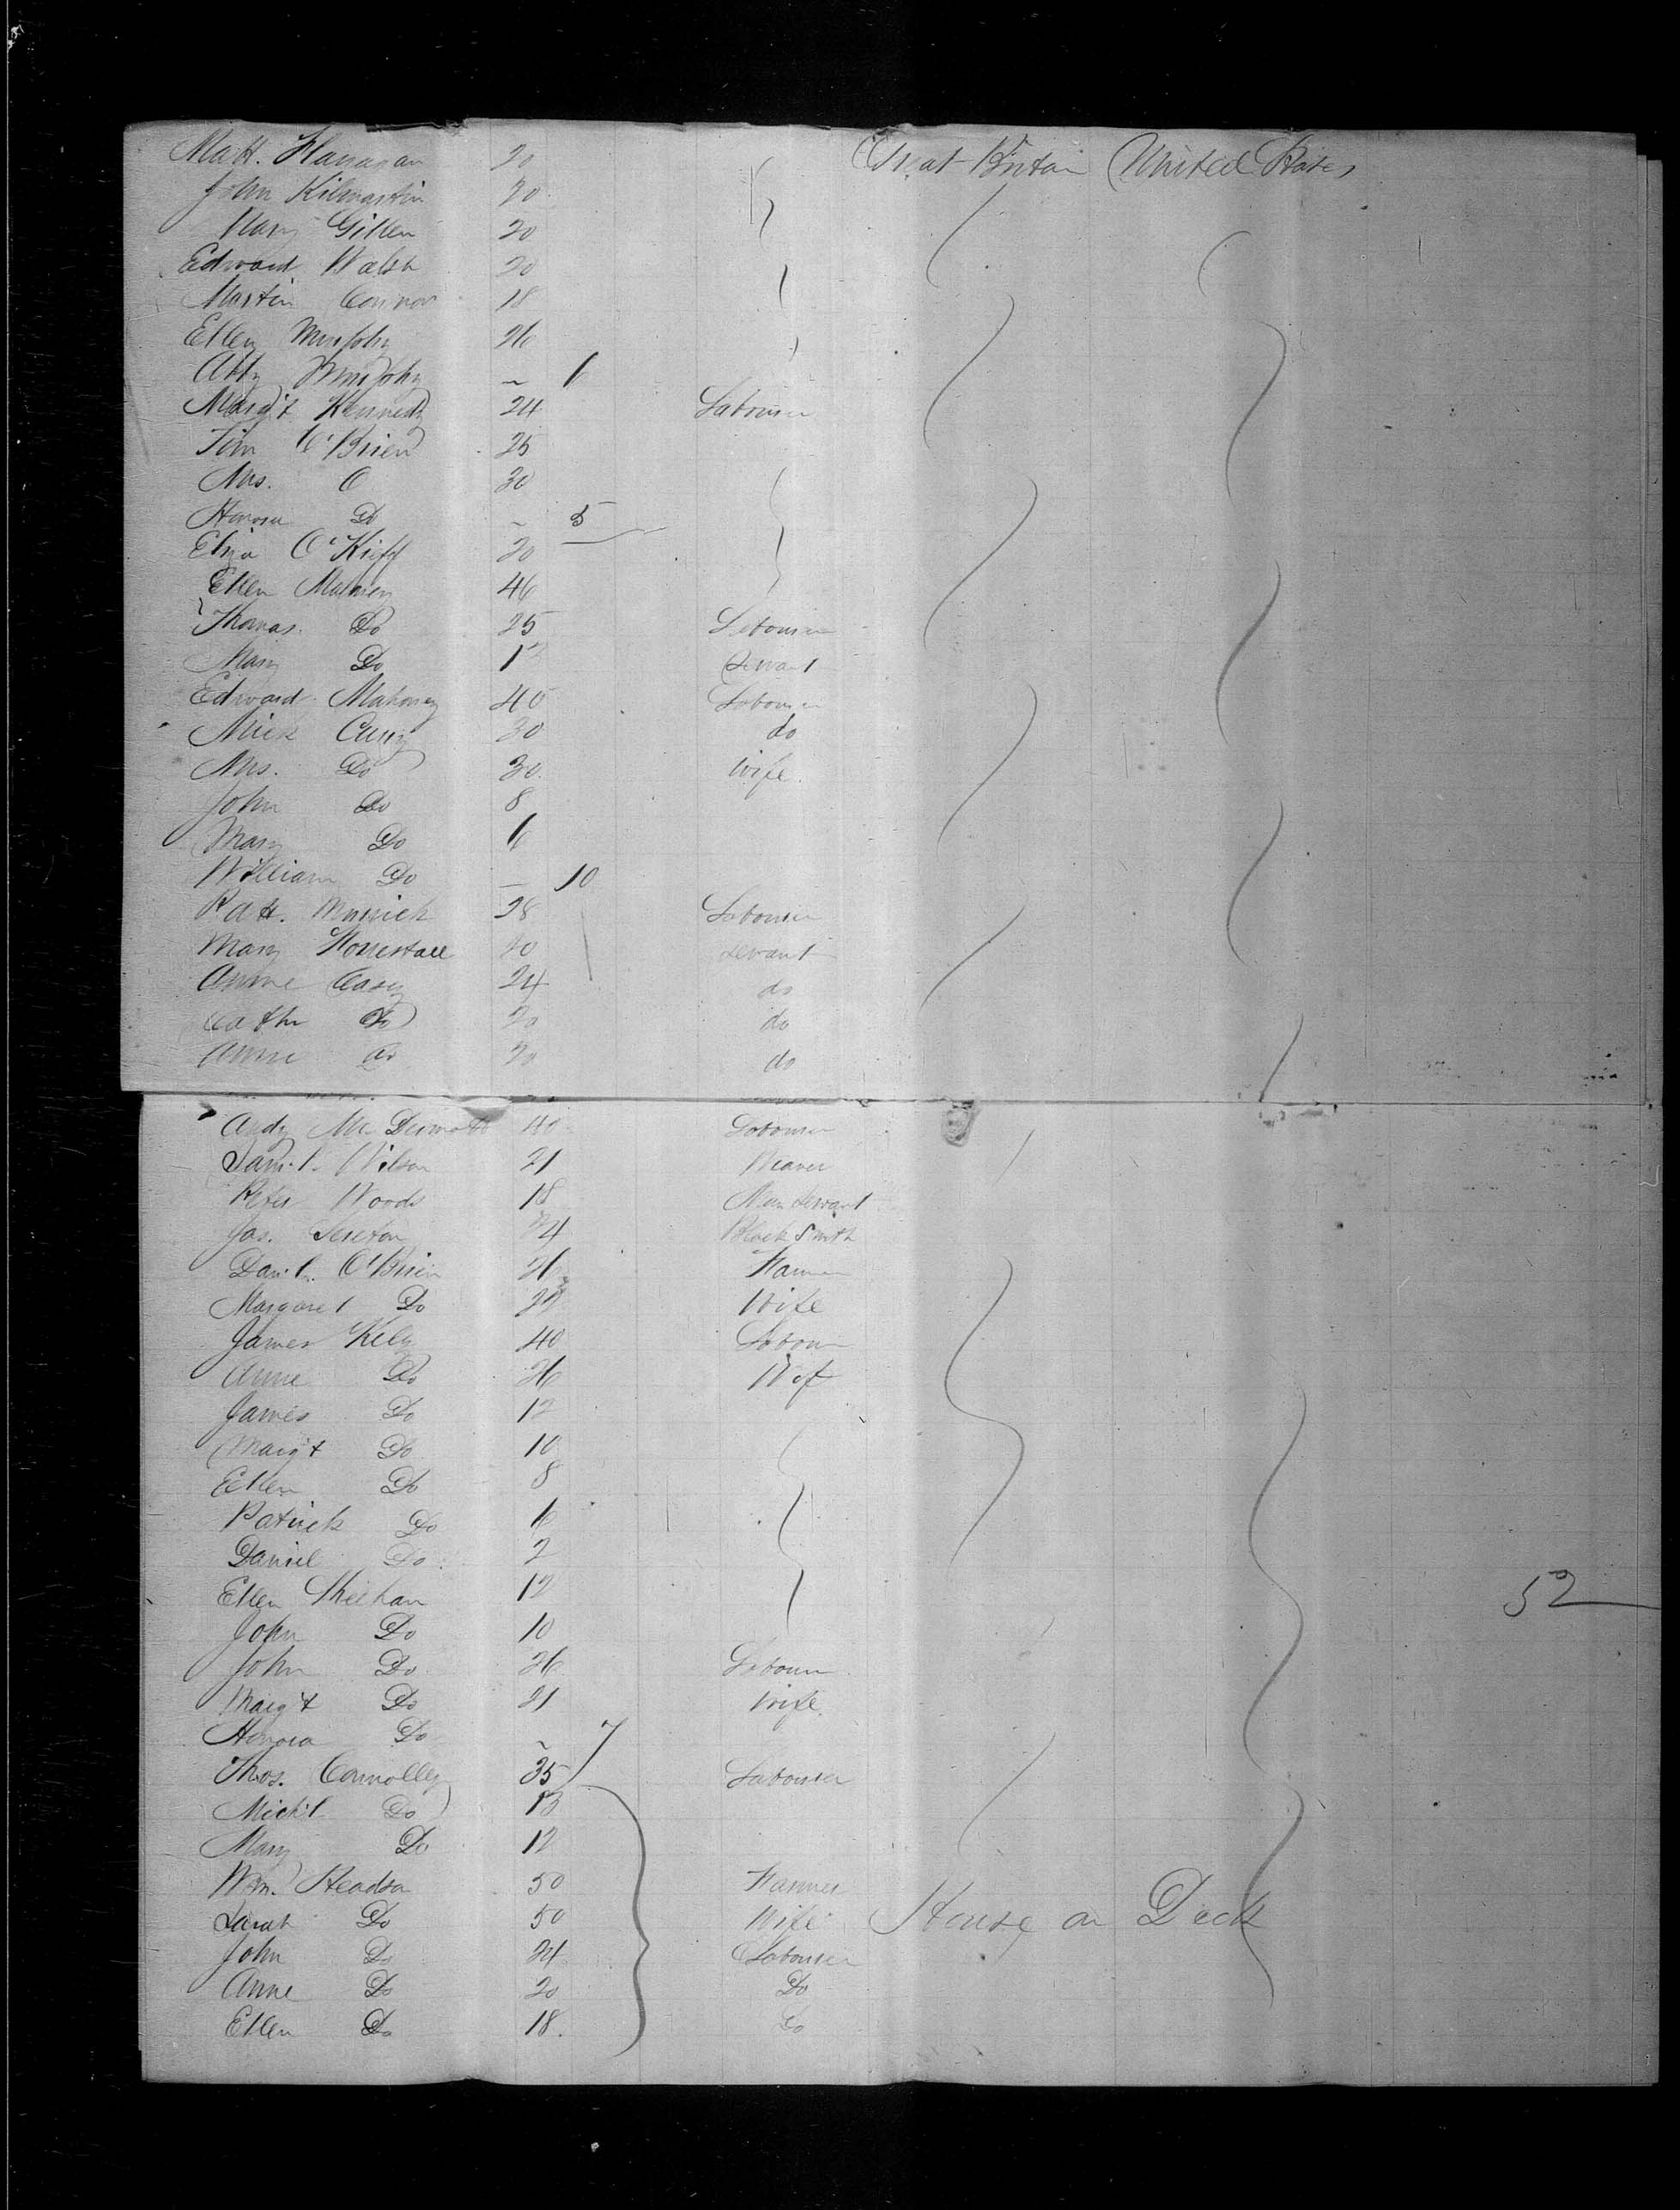 Matt. Flanagan 20 Great Britain United States
John Kilmartin 20
Mary Gillen 20
Edward Walsh 20
Martin Connor 18
Ellen Murphy 26
Abby Murphy ~ 6
Marg't Kennedy 24 Labourer
Tim O'Brien 25
Mrs. O 30
Honora Do ~ 5
Eliza O'Kieff 20
Ellen 46
Thomas Do 25 Labourer
Mary Do Servant
Edward Mahoney 40 Labourer
Mick Curry 30 do
Mrs. Do 30 Wife.
John Do 8
Mary Do 6
William Do — 10
Patt. 28 Labourer
Mary Servant
Annie Casey 24 do
Cath Do 20 do
Anne Do 20 do
Andy McDermott 40 Labourer
Sam'l. Wilson 21 Weaver
Peter Woods 18 Man Servant
Jas. Sexton Black Smith
Dan'l. O'Brien 26 Farmer
Margaret Do Wife
James Kely 40 Labour
Anne Do 36 Wif
James Do 12
Marg't Do 10
Ellen Do 8
Patrick Do 6
Daniel Do 2
Ellen Sheehan 12 52
John Do 10
John Do 26 Labourer
Marg't Do 21 Wife.
Honora Do ~ 7
Thos. Connolley 35 Labourer
Mich'l Do 13
Mary Do 12
Wm. 50 Farmer
Sarah Do 50 Wife House on Deck
John Do 24 Labourer
Anne Do 20 Do
Ellen Do 18. Do